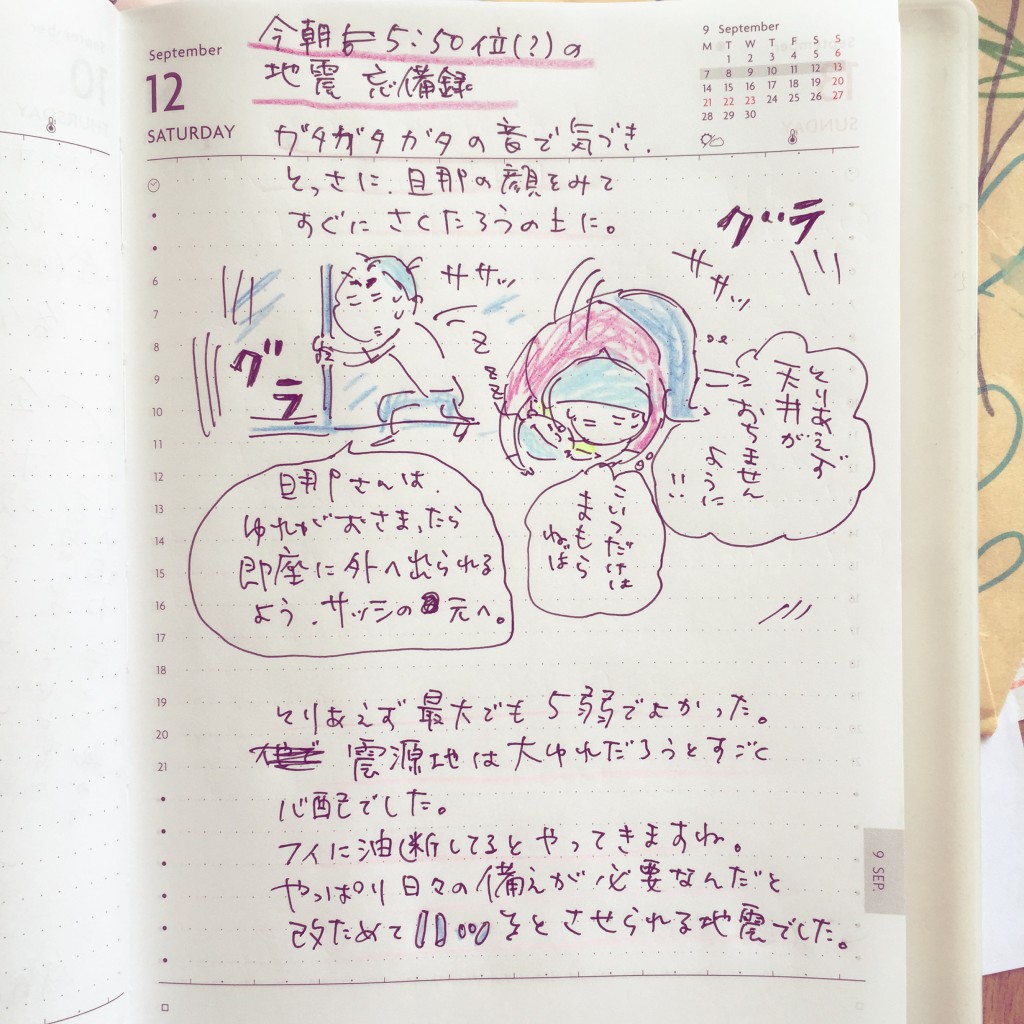 September
12
SATURDAY
今朝 5:50位(?)の
地震 忘備録
9 September
M T W T F S S
1 2 3 4 5 6
7 8 9 10 11 12 13
14 15 16 17 18 19 20
21 22 23 24 25 26 27
28 29 30
ガタガタガタの音で気づき、
とっさに、旦那の顔をみて
すぐにさくたろうの上に。
グラ
ササッ
ササッ
グラ
z
z
z
z
とりあえず
天井が
おちません
ように
!!
こいつだけは
まもら
ねば
旦那さんは、
ゆれがおさまったら
即座に外へ出られる
よう、サッシの元へ。
6
7
8
9
10
11
12
13
14
15
16
17
18
19
20
21
とりあえず最大でも5弱でよかった。
震源地は大ゆれだろうとすごく
心配でした。
フイに油断してるとやってきますね。
やっぱり日々の備えが必要なんだと
改ためて をとさせられる地震でした。
9 SEP.